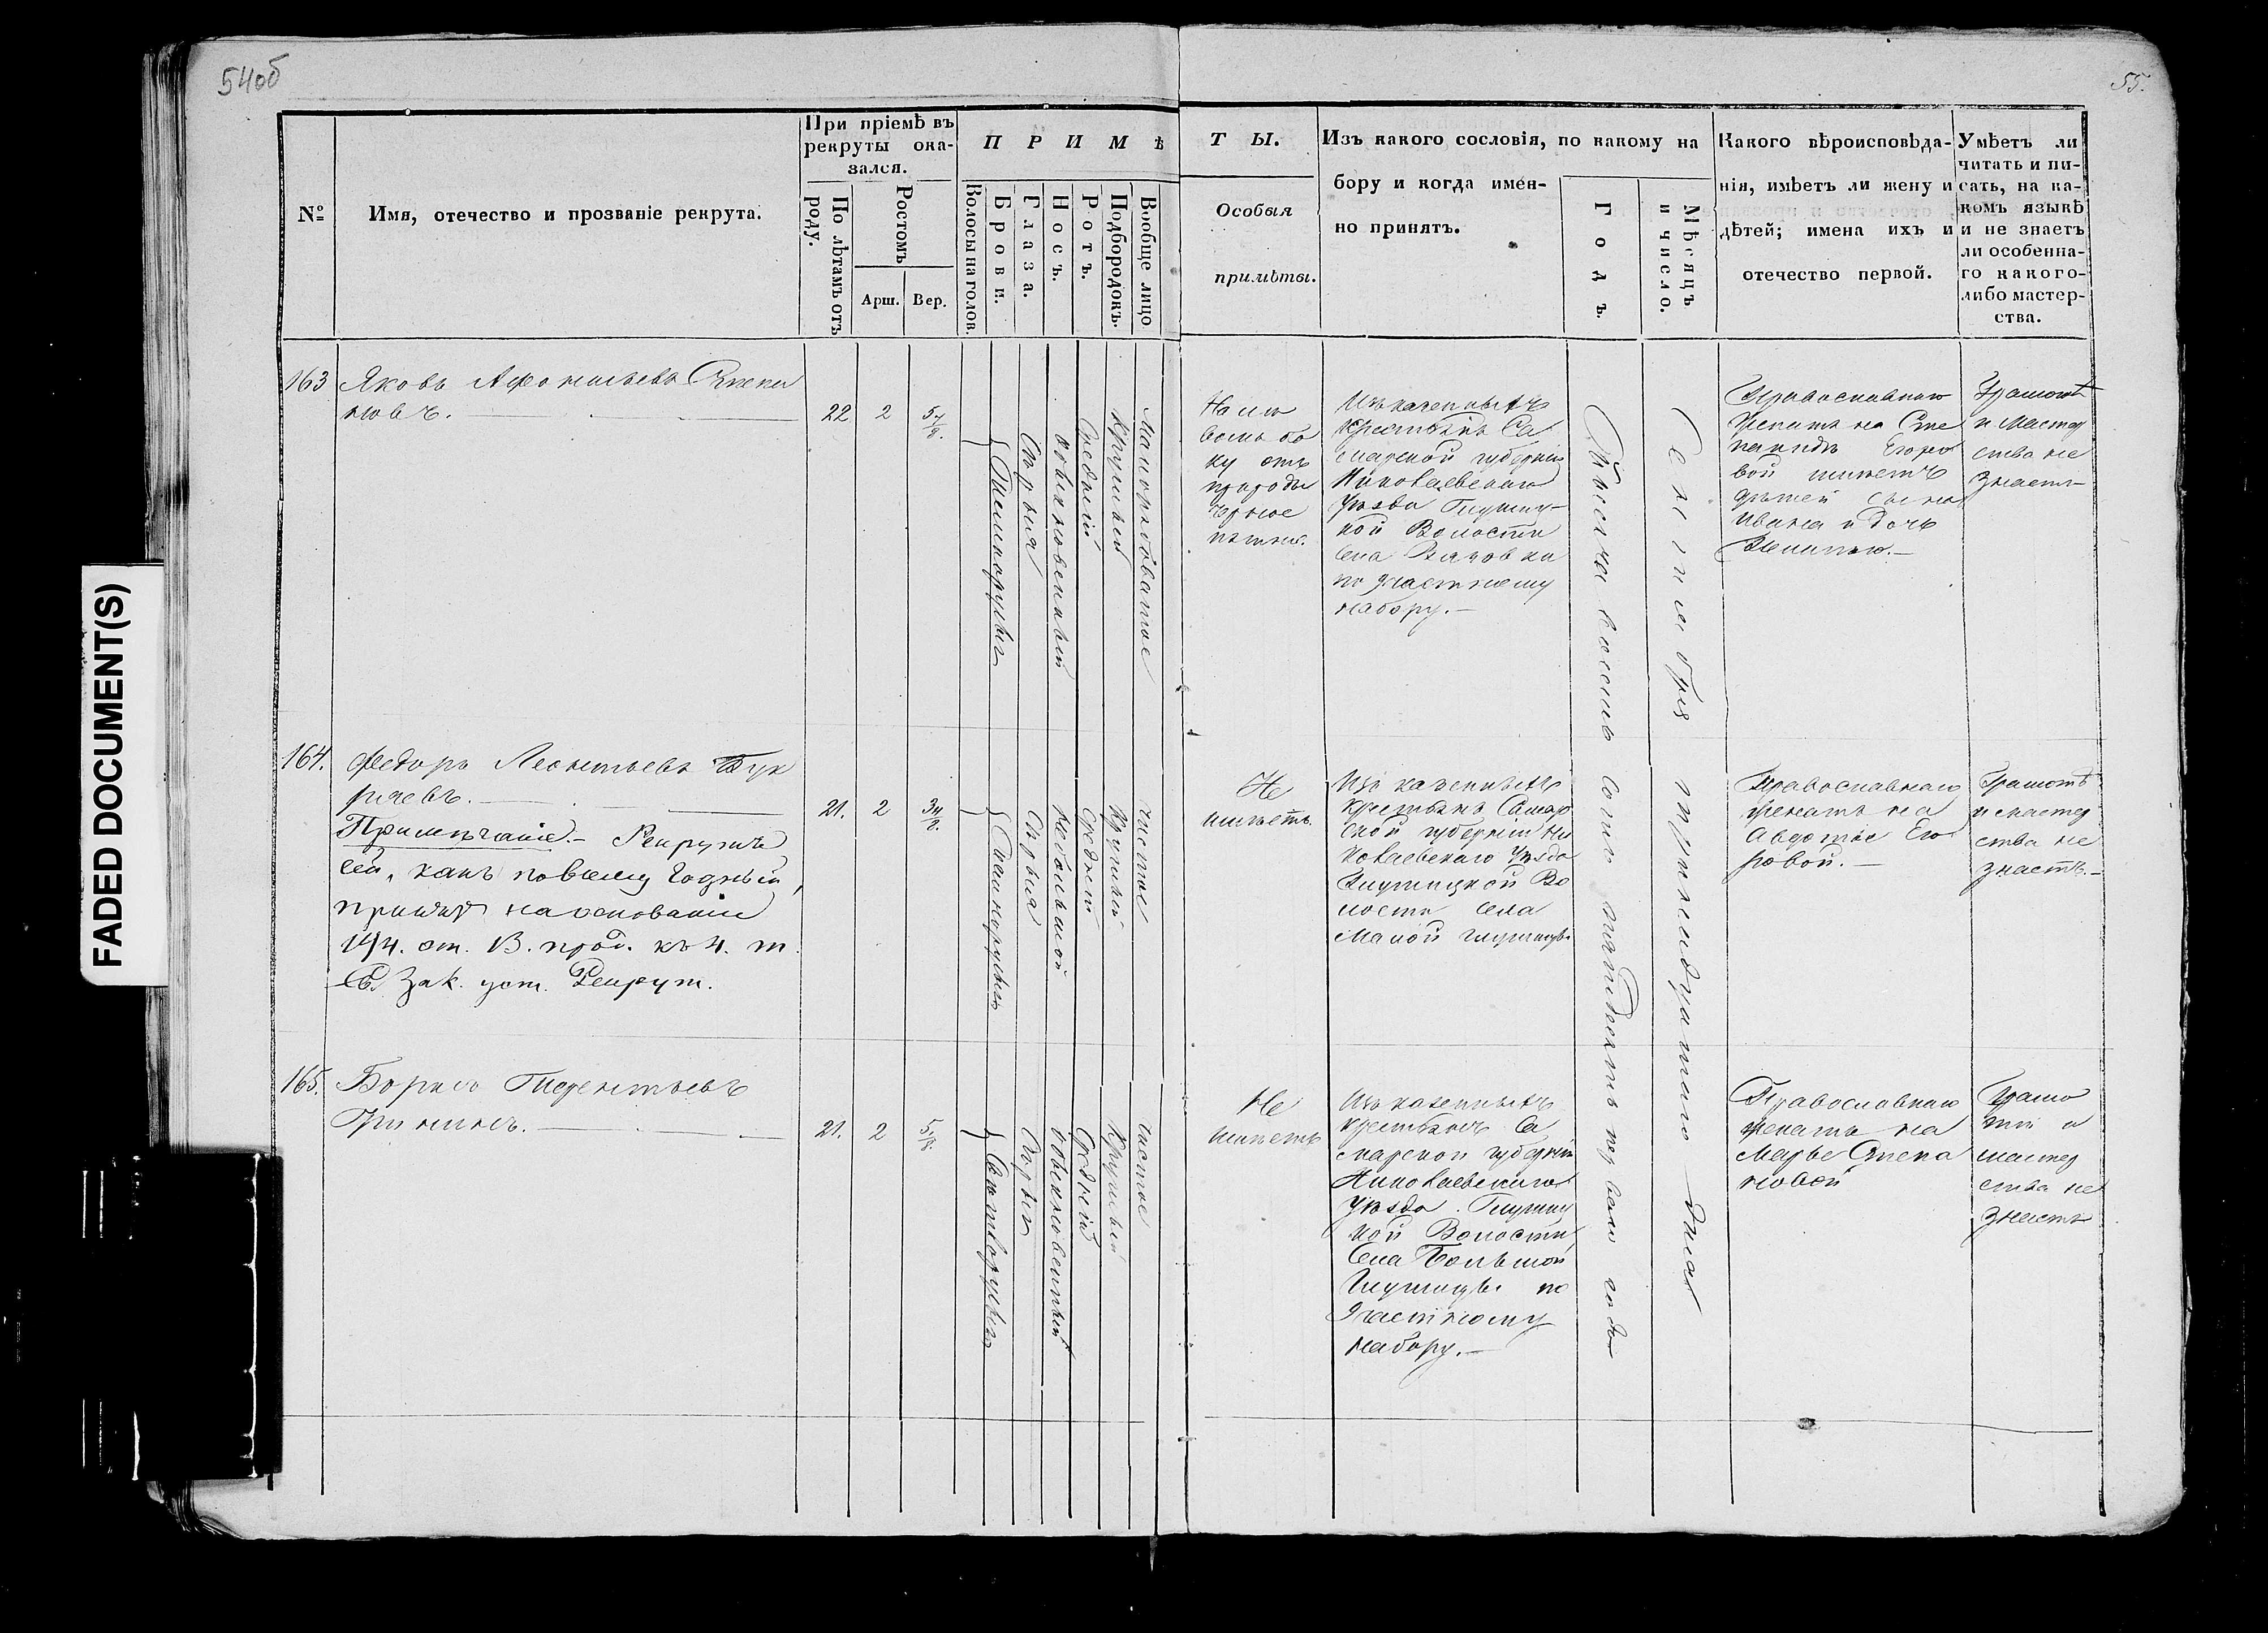 54об
55.
№
Имя, отечество и прозваніе рекрута.
При пріемѣ въ
рекруты ока-
зался.
По лѣтамъ отъ
роду.
Ростомъ
Арш.
Вер.
ПРИМѢ
Волосы на голов.
Брови.
Глаза.
Носъ.
Ротъ.
Подбородокъ.
Вообще лицо
ТЫ.
Особыя
примѣты.
Изъ какого сословія, по какому на
бору и когда имен-
но принятъ.
Годъ.
Мѣсяцъ
и число.
Какого вѣроисповѣда-
нія, имѣетъ ли жену и
дѣтей; имена ихъ и
отечество первой.
Умѣетъ ли
читать и пи-
сать, на ка-
комъ языкѣ
и не знаетъ
ли особенна-
го какого-
либо мастер-
ства.
163
Яковъ Афонасьевъ Степа
новъ.
22
2
5 4/8.
Темнорусыя
Сѣрыя
обыкновенный
Средній
круглый
малорябоватое
На лѣ
вомъ бо
ку отъ
природы
черное
пятно.
Изъ казенныхъ
крестьянъ Са
марской губерніи
Николаевскаго
уѣзда Глушиц-
кой Волости
села Вязовка
по частному
набору.—
Тысяча восемь сотъ пятдесятъ первого года
Сентября тринадцатаго дня
Православнаго
женатъ на Сте
панидѣ Егоро
вой имѣетъ
дѣтей сына
Ивана и дочь
Грамотѣ
и мастер
ства не
знаетъ
164.
Федоръ Леонтьевъ Бук
ряевъ.
Примѣчаніе.— Рекрутъ
сей, какъ повсему годный,
принятъ на основаніи
144. ст. 13. прод. къ 4. т.
Св. Зак. уст. Рекрут.
21.
2
3 4/8.
Сѣрыя
небольшой
средній
круглый
чистое
Не
имѣетъ.
Изъ казенныхъ
крестьянъ Самар
ской губерніи Ни
колаевскаго уѣзда
Глушицкой Во
лости села
Малой Глушицы
Православнаго
женатъ на
Авдотьѣ Его
ровой.—
Грамотѣ
и мастер
ства не
знаетъ.—
165.
Борисъ Терентьевъ
Гринин.
21.
2
5 1/8.
Светлорусыя
Сѣрыя
обыкновенный
Средній
круглый
чистое
Не
имѣетъ
Изъ казенныхъ
крестьянъ Са
марской губерніи
Николаевскаго
уѣзда Глушиц
кой Волости,
Села Большой
Глушицы по
частному
набору.—
Православнаго
женатъ на
Марьѣ Степа
новой
Грамо
тѣ и
мастер
ства не
знаетъ
FADED DOCUMENT(S)